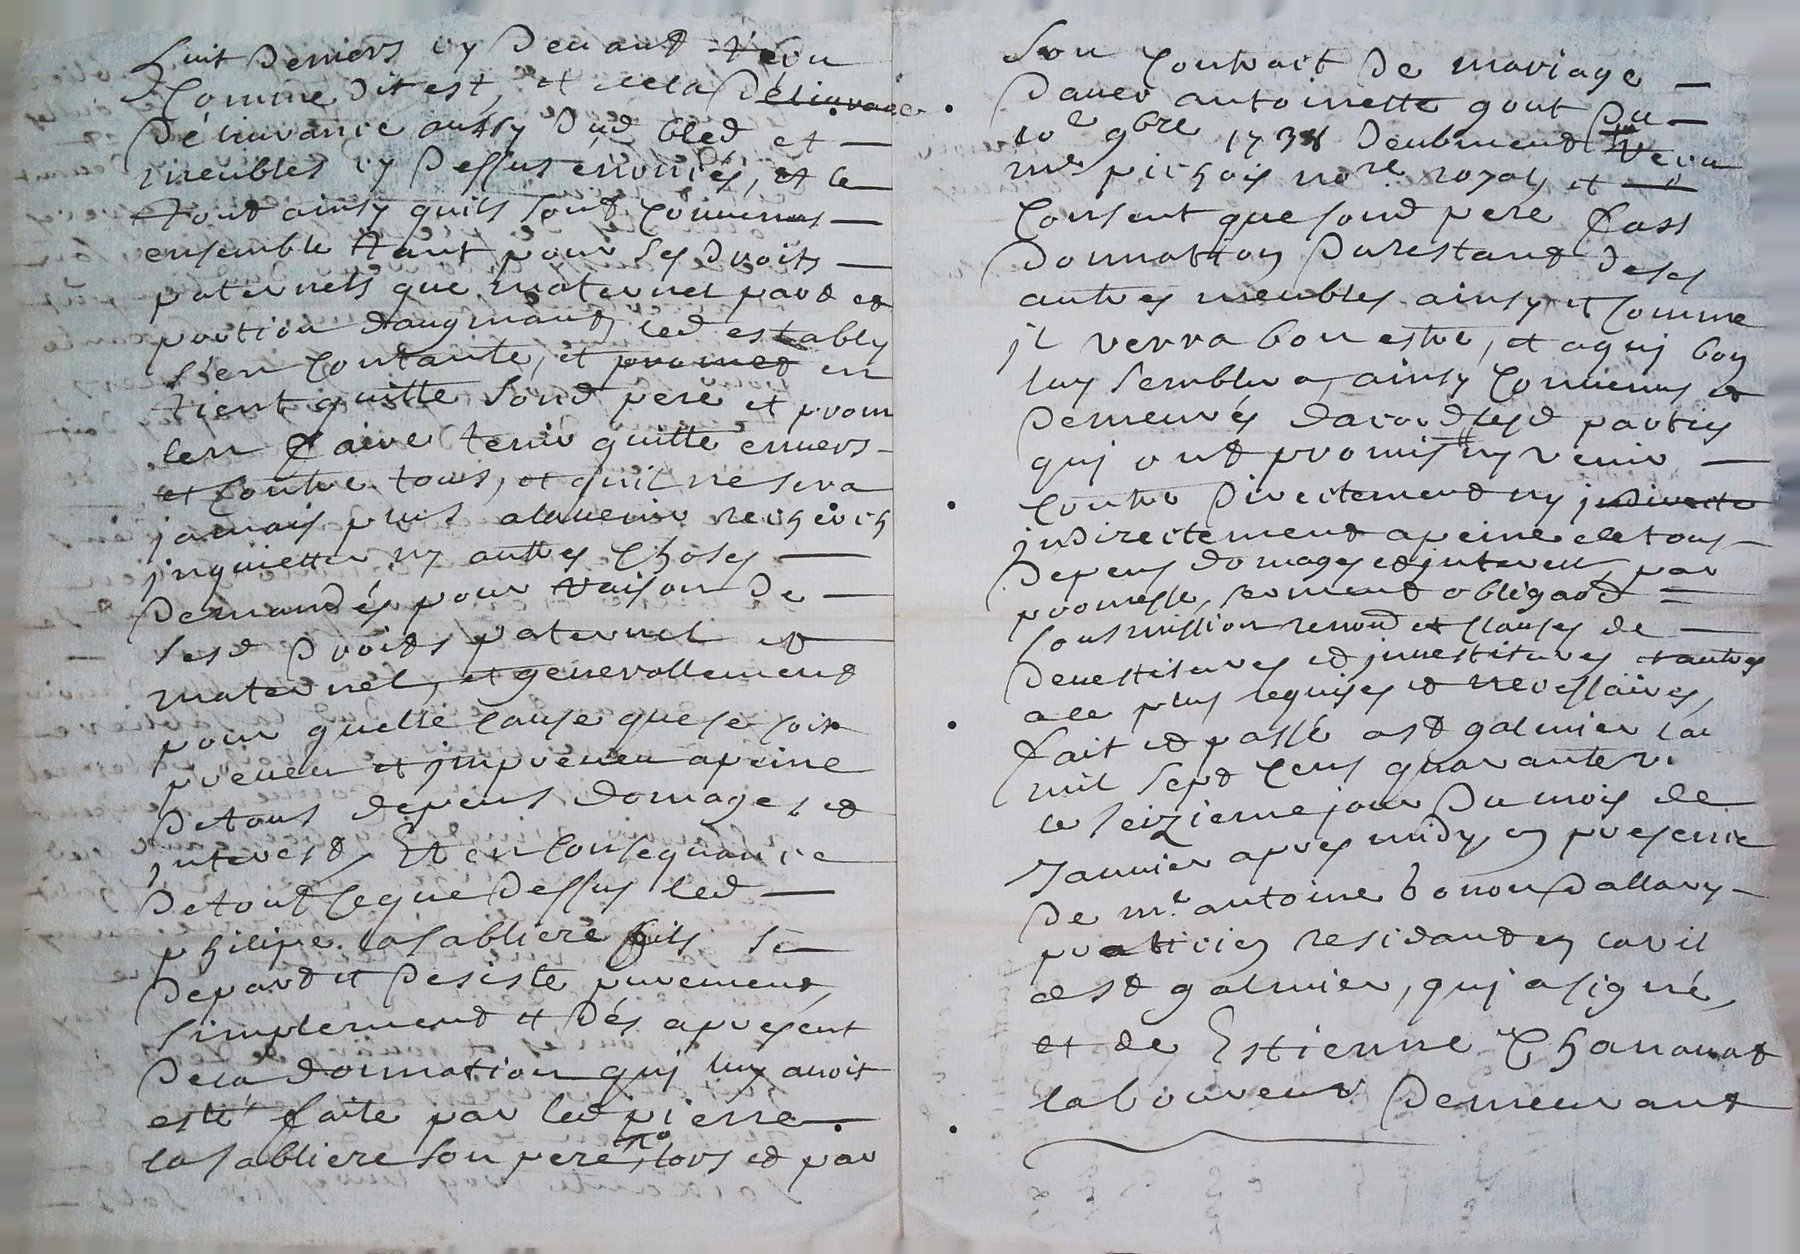 huit deniers cy devant reçu
comme dit est, et cela délivrance
délivrance aussy dud bled et
meubles cy dessus énoncés, et le
tout ainsy quils sont convenus
ensemble tant pour ses droits
paternels que maternel part et
portion daugmant, led estably
s'en contante, et promet en
tient quitte sond pere et prom
len faire tenir quitte envers
et contre tous, et quil ne sera
jamais plus aladvenir recherch
inquietter ny autres choses
demandés pour raison de
sesd droits paternel et
maternel, et generallement
pour quelle cause que se soit
preveu et impreveu apeine
detous depens domages et
interest, Et en consequance
detout ceque dessus led
philipe lasabliere fils se
depart et desiste purement,
simplement et dés apresent
dela donnation qui luy avoit
esté faite par led pierre
lasabliere son pere lors et par
son contrait de mariage
avec antoinette gout du
10e 9bre 1738 deubment reçu
me pichois nore royal et
consent que sond pere fass
donnation durestant deses
autres meubles ainsy et comme
il verra bon estre, et aquj bon
luy semblera, ainsy convenus et
demeurés dacord lesd parties
quj ont promis ny venir
contre directement ny indirecte
indirectement apeine de tous
depens domages et interest, par
promesse, serment obligaôd
sousmission renond et clauses de
devestitures et investitures et autres
ace plus requises et necessaires,
fait et passé a st galmier lan
mil sept cens quarante
le seizieme jour du mois de
Janvier apres midy, en presence
de me antoine bonon dallary
pratticien residant en lavil
de st galmier, quj a signé,
et de Estienne Chanavat
laboureur demeurant